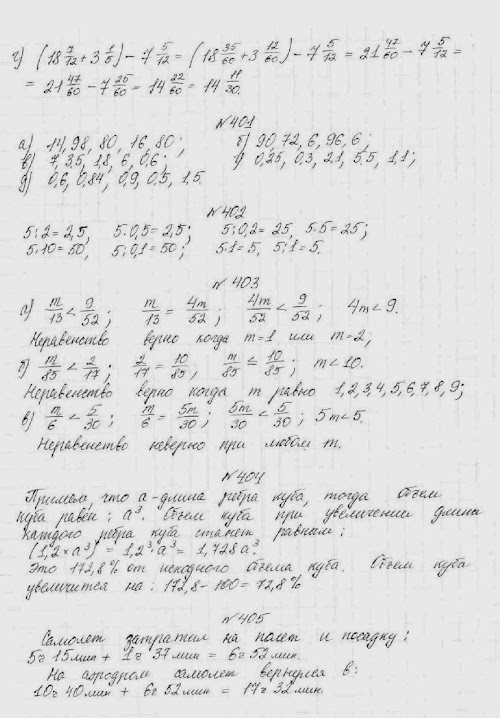 г) (18 7/12 + 3 1/5) - 7 5/12 = (18 35/60 + 3 12/60) - 7 5/12 = 21 47/60 - 7 5/12 =
= 21 47/60 - 7 25/60 = 14 22/60 = 14 11/30.
№401
а) 14, 98, 80, 16, 80; б) 90, 72, 6, 96, 6;
в) 7, 3,5, 1,8, 6, 0,6; г) 0,25, 0,3, 2,1, 5,5, 1,1;
д) 0,6, 0,84, 0,9, 0,5, 1,5.
№402
5:2=2,5, 5·0,5=2,5; 5:0,2=25, 5·5=25;
5·10=50, 5:0,1=50; 5·1=5, 5:1=5.
№403
а) m/13 < 9/52; m/13 = 4m/52; 4m/52 < 9/52; 4m<9.
Неравенство верно когда m=1 или m=2;
б) m/85 < 2/17; 2/17 = 10/85, m/85 < 10/85; m<10.
Неравенство верно когда m равно 1,2,3,4,5,6,7,8,9;
в) m/6 < 5/30; m/6 = 5m/30; 5m/30 < 5/30; 5m<5.
Неравенство неверно при любом m.
№404
Примем, что а - длина ребра куба, тогда объем
куба равен: а³. Объем куба при увеличении длины
каждого ребра куба станет равным:
(1,2×а³) = 1,2³·а³ = 1,728а³.
Это 172,8% от исходного объема куба. Объем куба
увеличится на: 172,8-100=72,8%
№405
Самолет затратил на полет и посадку:
5ч 15мин + 1ч 37мин = 6ч 52мин.
На аэродром самолет вернулся в:
10ч 40мин + 6ч 52мин = 17ч 32мин.